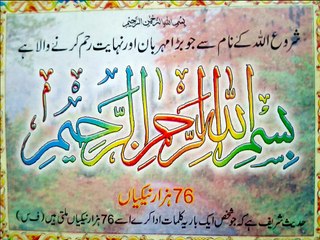 بسم اللہ الرحمن الرحیم
شروع اللہ کے نام سے جو بڑا مہربان اور نہایت رحم کرنے والا ہے
بِسْمِ اللّٰهِ الرَّحْمٰنِ الرَّحِيْمِ
76 ہزار نیکیاں
حدیث شریف ہے کہ جو شخص ایک بار یہ کلمات ادا کرے اسے 76 ہزار نیکیاں ملتی ہیں (ف س)